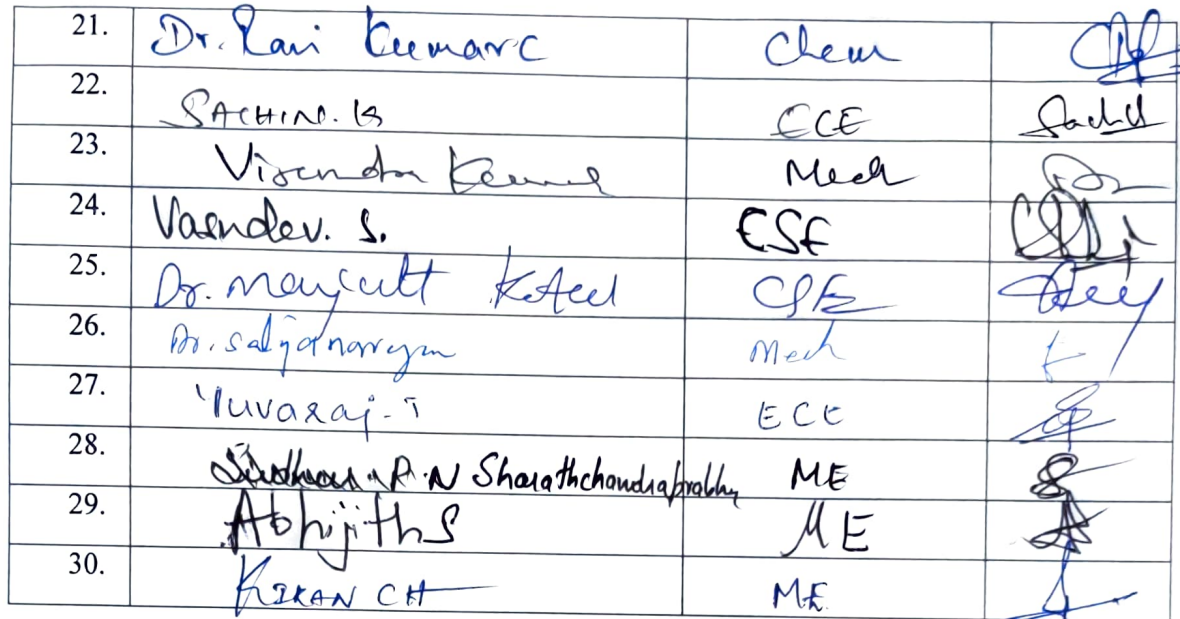 21. Dr. Ravi Kumar C Chem
22. SACHIN. B ECE Sachi
23. Virendra Kumar Mech
24. Vasudev. S. ESE
25. Dr. Manjunath Kotari CSE
26. Dr. Satyanarayan Mech
27. Yuvaraj-T ECE
28. P.N Sharathchandraprabhu ME
29. Abhijith S ME
30. KIRAN CH ME